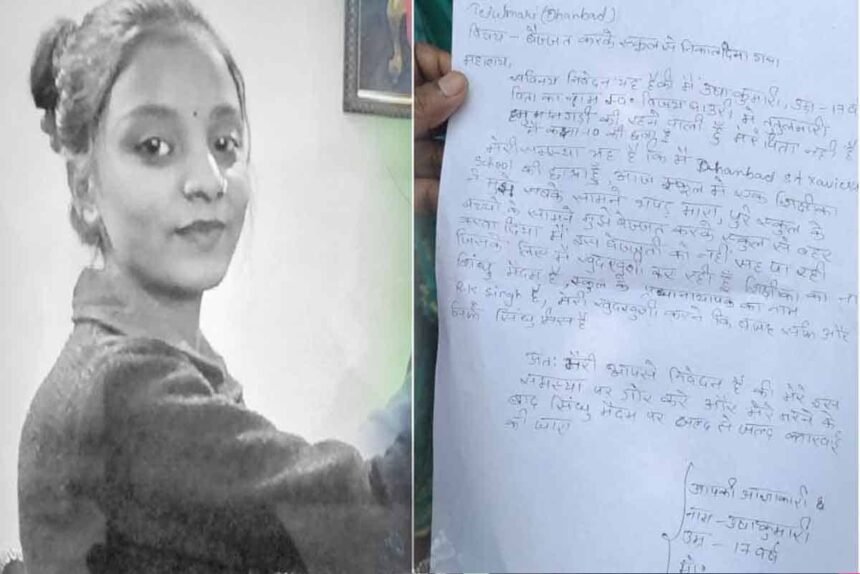 Tetulmari (Dhanbad)
विषय - बेज्जत करके स्कूल से निकाल दिया गया
महाशय,
सविनय निवेदन यह है की मैं उषा कुमारी, उम्र - 17 वर्ष
पिता का नाम स्व० बाउरी मैं तेतुलमारी
हनुमानगढ़ी की रहने वाली हूँ मेरे पिता नही है
मैं कक्षा-10 की छात्रा हूँ
मेरी समस्या यह है कि मैं Dhanbad St Xaviers
School की छात्रा हूँ, आज स्कूल में एक शिक्षीका
ने मुझे सबके सामने थापड़ मारा, पुरे स्कूल के
बच्चो के सामने मुझे बेज्जत करके स्कूल से बहर
करवा दिया मैं इस बेज्जती को नहीं सह पा रही
जिसके लिए मैं खुदखुशी कर रही हूँ शिक्षीका का ना
सिंधु मैडम है, स्कूल के प्रधानाध्यापक का नाम
R.K Singh है, मेरी खुदखुशी करने कि वजह सर्फ और
सिर्फ सिंधु मिस है
अतः मेरी आपसे निवेदन है की मेरे इस
समस्या पर गोर करे और मेरे मरने के
बाद सिंधु मैडम पर जल्द से जल्द कारवाई
की जाए
आपकी आज्ञाकारी
नाम - उषा कुमारी
उम्र - 17 वर्ष
मो०